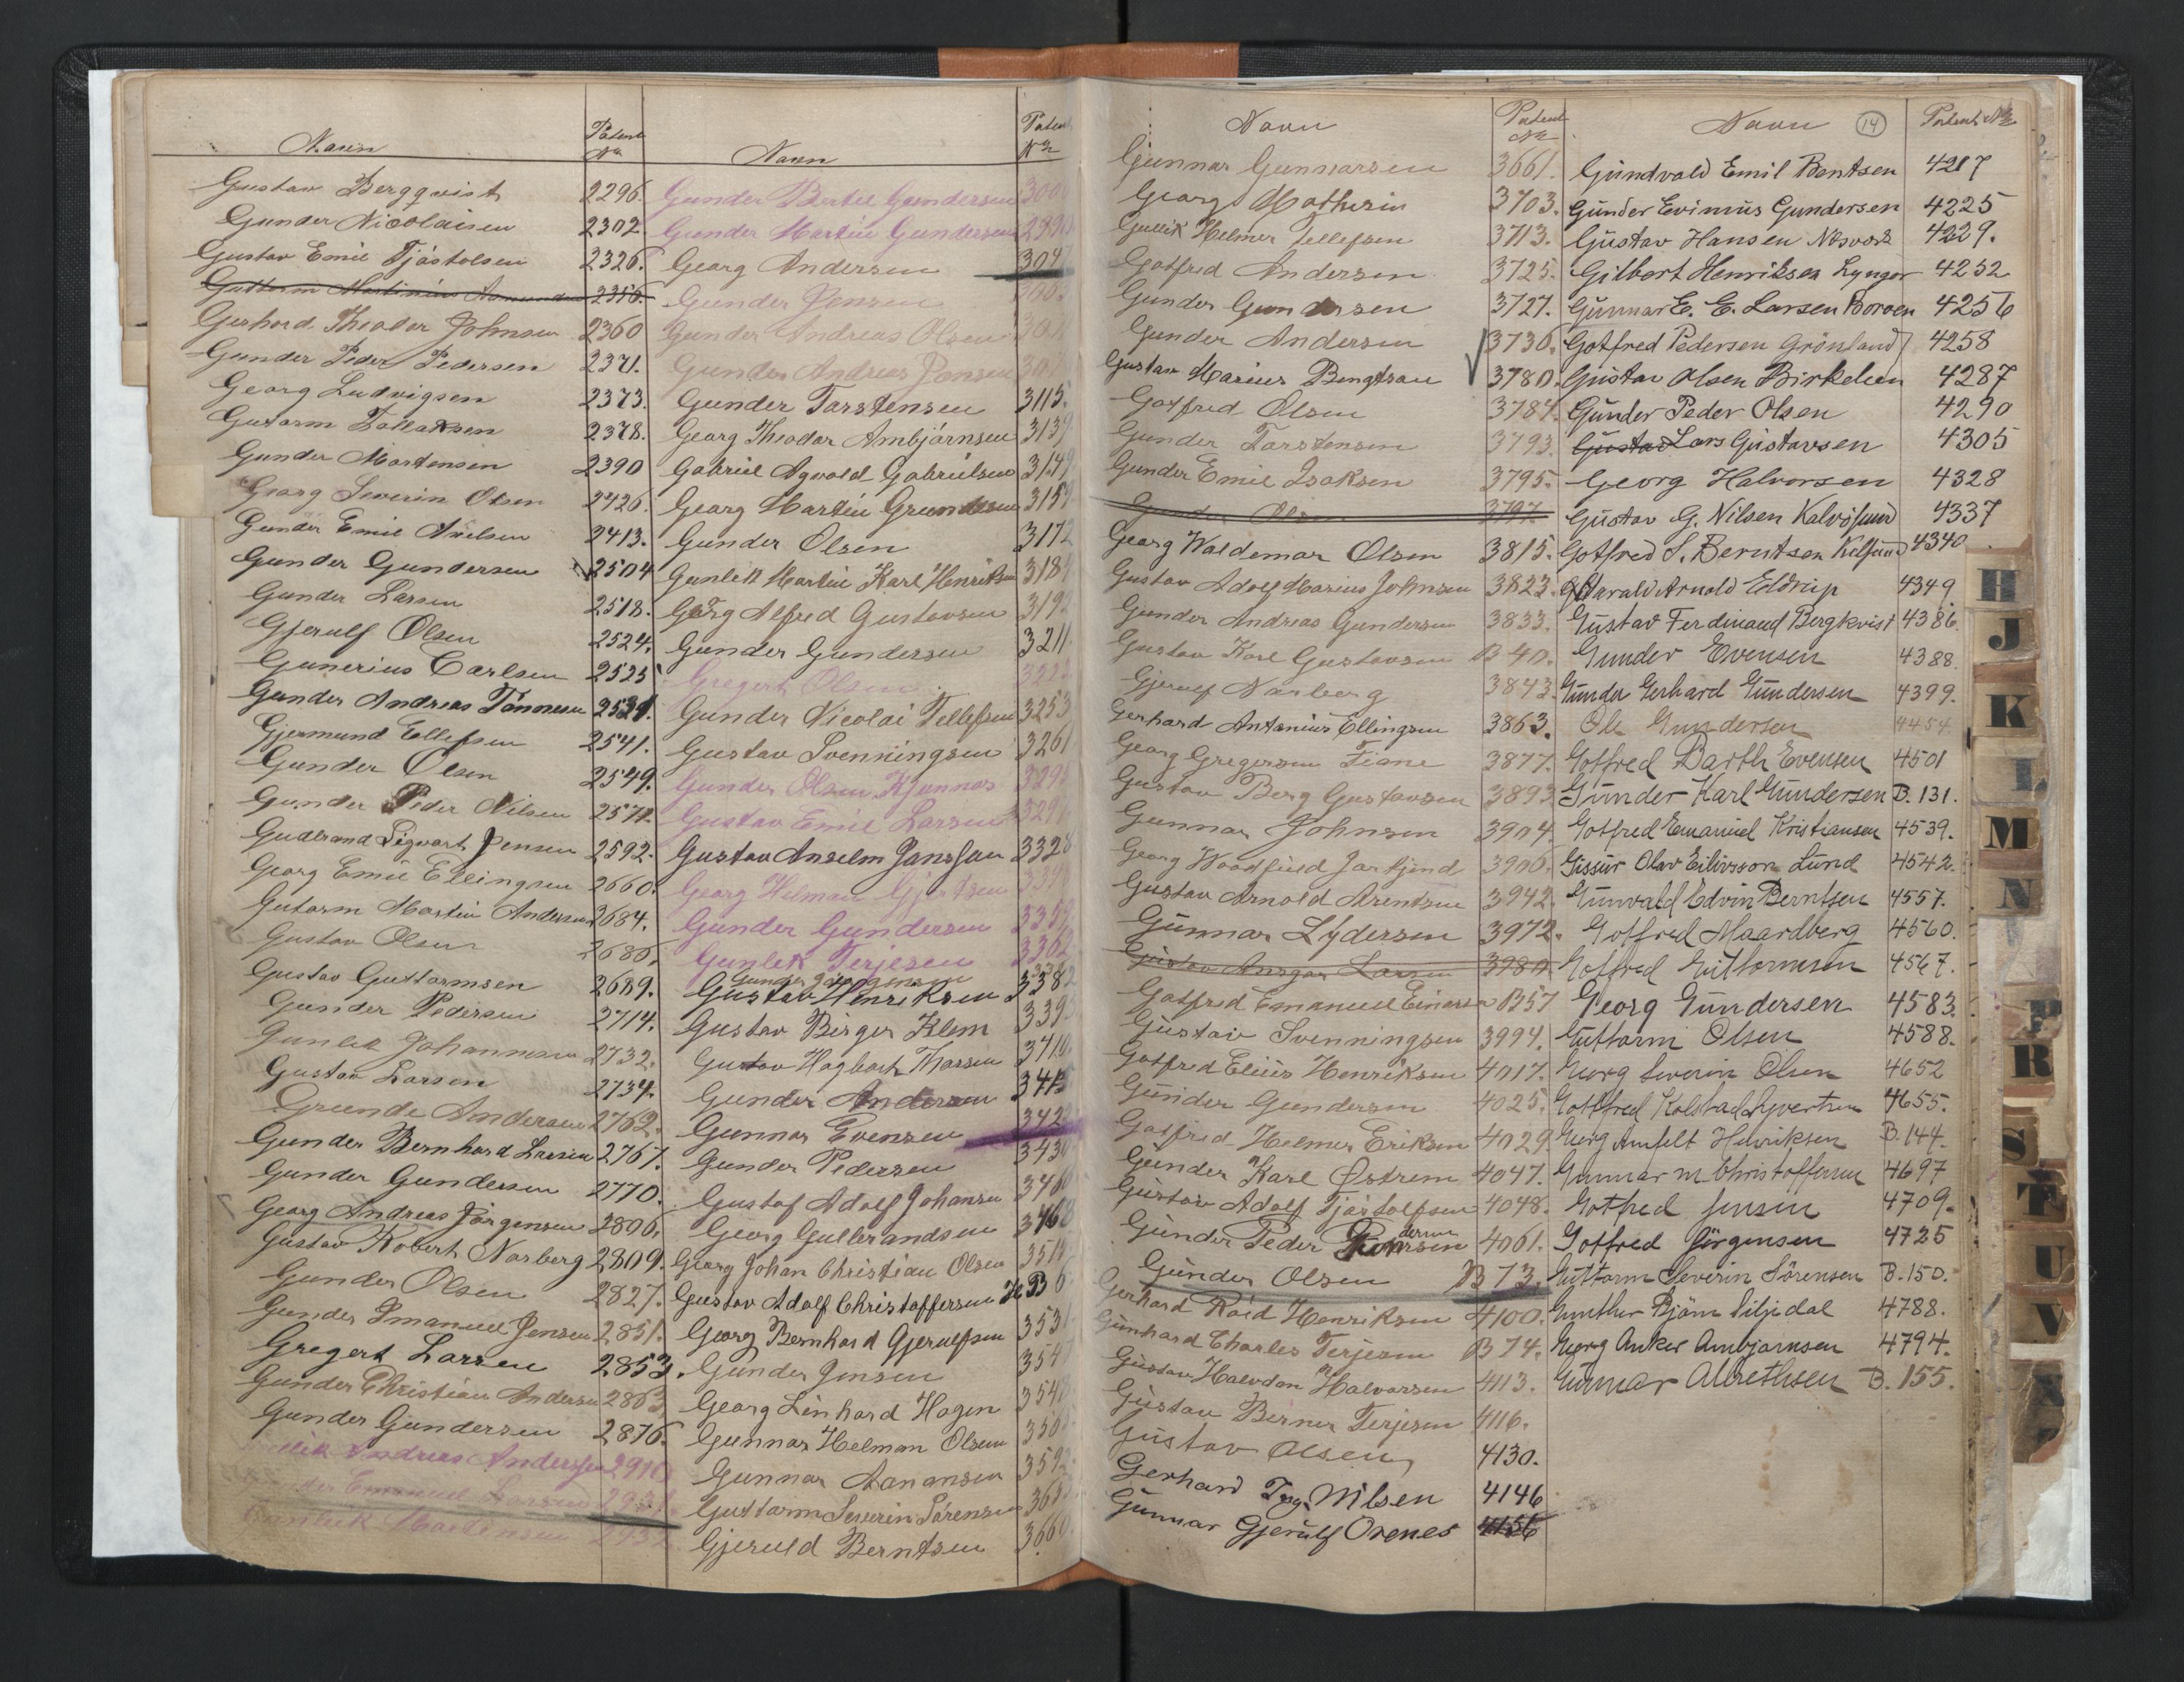 Navn Patent No Navn Patent No
Gustav Bergqvist 2296.
Gunder Nicolaisen 2302.
Gustav Emil Tjöstolsen 2326.
Guttorm Martinius 2356.
Gerhard Theodor Johnsen 2360
Gunder Peder Pedersen 2371.
Georg Ludvigsen 2373.
Gutorm Tallaksen 2378.
Gunder Mortensen 2390
Georg Severin Olsen 2426.
Gunder Emil Nielsen 2413.
Gunder Gundersen 2504
Gunder Larsen 2518.
Gjerulf Olsen 2524.
Gunerius Carlsen 2525
Gunder Andreas Tönnesen 2531.
Gjermund Ellefsen 2541.
Gunder Olsen 2549.
Gunder Peder Nilsen 2571.
Gudbrand Sigvart Jensen 2592.
Georg Emil Ellingsen 2660.
Gutorm Martin Andersen 2684.
Gustav Olsen 2686.
Gustav Guttormsen 2689.
Gunder Pedersen 2714.
Gunlek Johannesen 2732.
Gustav Larsen 2734.
Gunde Andersen 2762.
Gunder Bernhard Larsen 2767.
Gunder Gundersen 2770.
Georg Andreas Jörgensen 2806.
Gustav Robert Norberg 2809.
Gunder Olsen 2827.
Gunder Imanuel Jensen 2851.
Gregert Larsen 2853.
Gunder Christian Andersen 2863
Gunder Gundersen 2876.
Andreas Andersen 2910
Emanuel Larsen
Martinsen
Gunder Bertel Gundersen 300
Gunder Martin Gundersen 2990
Georg Andersen 304
Gunder Jensen
Gunder Andreas Olsen
Gunder Andreas Jensen
Gunder Torstensen 3115.
Georg Theodor Ambjörnsen 3139
Gabriel Agvald Gabrielsen 3149
Georg Martin Gundersen 3159
Gunder Olsen 3172
Gunlek Martin Karl Henriksen 318
Georg Alfred Gustavsen 319
Gunder Gundersen 3211.
Gregert Olsen 322
Gunder Nicolai Tellefsen 3253
Gustav Svenningsen 3261
Gunder Olsen Kjennas 329
Gustav Emil Larsen 329
Gustav Anselm Jansson 3328
Georg Helman Gjertsen 334
Gunder Gundersen 3359
Gunlek Terjesen 3362
Gunder Jörgensen
Gustav Henriksen 3382
Gustav Birger Klem 339
Gustav Hagbart Thorsen 3410.
Gunder Andersen 341
Gunnar Evensen 342
Gunder Pedersen 3430
Gustaf Adolf Johansen 346
Georg Gulbrandsen 3468
Georg Johan Christian Olsen 351
Gustav Adolf Christoffersen B 6
Georg Bernhard Gjerulfsen 353
Gunder Jensen 354
Georg Linhard Hagen 354
Gunnar Helman Olsen 356
Gunnar Aanonsen 359
Guttorm Severin Sörensen 363
Gjeruld Berntsen 3660.
Navn Patent No Navn 14 Patent No
Gunnar Gunnarsen 3661.
Georg Mathisen 3703.
Gullik Helmer Tellefsen 3713.
Gotfred Andersen 3725.
Gunder Gundersen 3727.
Gunder Andersen 3736.
Gustav Marius Bengtson 3780.
Gotfred Olsen 3784.
Gunder Torstensen 3793.
Gunder Emil Isaksen 3795.
Gunder Olsen 3797.
Georg Waldemar Olsen 3815.
Gustav Adolf Marius Johnsen 3823.
Gunder Andreas Gundersen 3833.
Gustav Karl Gustavsen B 40.
Gjerulf Norberg 3843.
Gerhard Antonius Ellingsen 3863.
Georg Gregersen Tiane 3877.
Gustav Berg Gustavsen 3893.
Gunnar Johnsen 3904.
Georg 3906.
Gustav Arnold Arentsen 3942.
Gunnar Lydersen 3972.
Gustav Ansgar Larsen 3980.
Gotfred Emanuel Einarsen B 57
Gustav Svenningsen 3994.
Gotfred Elius Henriksen 4017.
Gunder Gundersen 4025.
Gotfred Helmer Eriksen 4029.
Gunder Karl Östrem 4047.
Gustav Adolf Tjöstolfsen 4048.
Gunder Peder 4061.
Gunder Olsen B 73.
Gerhard Roid Henriksen 4100.
Gunhard Charles Terjesen B 74.
Gustav Halvdan Halvorsen 4113.
Gustav Berner Terjesen 4116.
Gustav Olsen 4130.
Gerhard Tryg. Nilsen 4146
Gunnar Gjerulf Oxenes 4156
Gundvald Emil Bentsen 4217
Gunder Evimus Gundersen 4225
Gustav Hansen 4229.
Gilbert Henriksen Lyngör 4252
Gunnar E. E. Larsen Boröen 4256
Gotfred Pedersen Grönland 4258
Gustav Olsen Birkelien 4287
Gunder Peder Olsen 4290
Gustav Lars Gustavsen 4305
Georg Halvorsen 4328
Gustav G. Nilsen Kalvösund 4337
Gotfred S. Berntsen 4340
Harald Arnold Eldrup 4349
Gustav Ferdinand Bergkvist 4386
Gunder Evensen 4388.
Gunder Gerhard Gundersen 4399.
Ole Gundersen 4454
Gotfred Barth Evensen 4501
Gunder Karl Gundersen B. 131.
Gotfred Emanuel Kristiansen 4539.
Gissur Olav Eilivsson Lund 4542.
Gunvald Edvin Berntsen 4557.
Gotfred Maardberg 4560.
Gotfred Guttormsen 4567.
Georg Gundersen 4583.
Guttorm Olsen 4588.
Georg Severin Olsen 4652
Gottfred Kolstad Syvertsen 4655.
Georg Amfelt Henriksen B. 144.
Gunnar M. Christoffersen 4697
Gotfred Jensen 4709.
Gotfred Jörgensen 4725
Guttorm Severin Sörensen B. 150.
Gunther Björn Liljedal 4788.
Georg Anker Ambjörnsen 4794.
Gunnar Albrethsen B. 155.
H
J
K
L
M
N
P
R
S
T
U
V